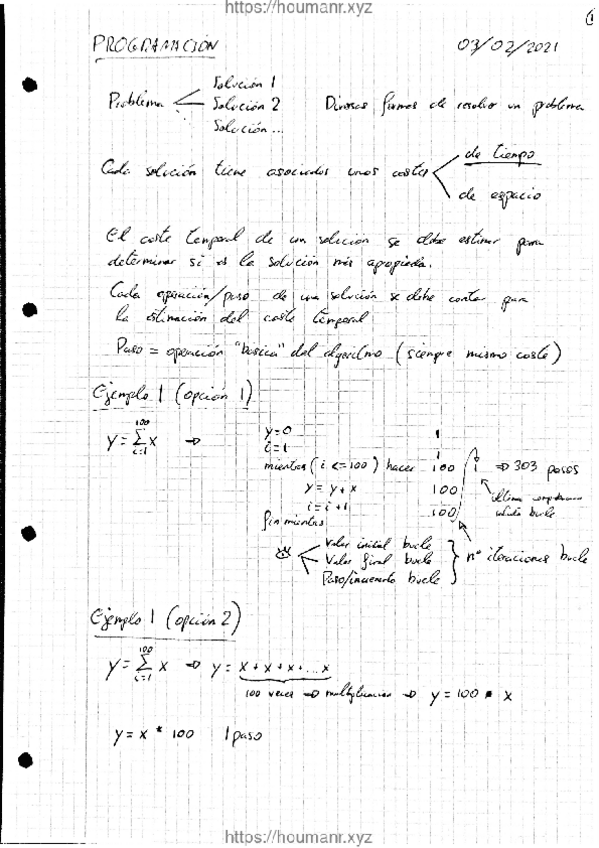 https://houmanr.xyz
1
PROGRAMACIÓN 03/02/2021
Solución 1
Problema Solución 2 Diversas formas de resolver un problema
Solución...
de tiempo
Cada solución tiene asociados unos costes
de espacio
El coste temporal de una solución se debe estimar para
determinar si es la solución más apropiada.
Cada operación/paso de una solución se debe contar para
la estimación del coste temporal
Paso = operación "basica" del algoritmo (siempre mismo coste)
Ejemplo 1 (opción 1)
y = 100 Σ i=1 x ⇒ y=0 1
i=1 1
mientras (i <= 100) hacer 100 1 ⇒ 303 pasos
y = y + x 100 última
i = i + 1 100 bucle
fin mientras
Valor inicial bucle
Valor final bucle nº iteraciones bucle
Paso/incremento bucle
Ejemplo 1 (opción 2)
y = 100 Σ i=1 x ⇒ y = x + x + x + ... x
100 veces ⇒ multiplicación ⇒ y = 100 * x
y = x * 100 1 paso
https://houmanr.xyz